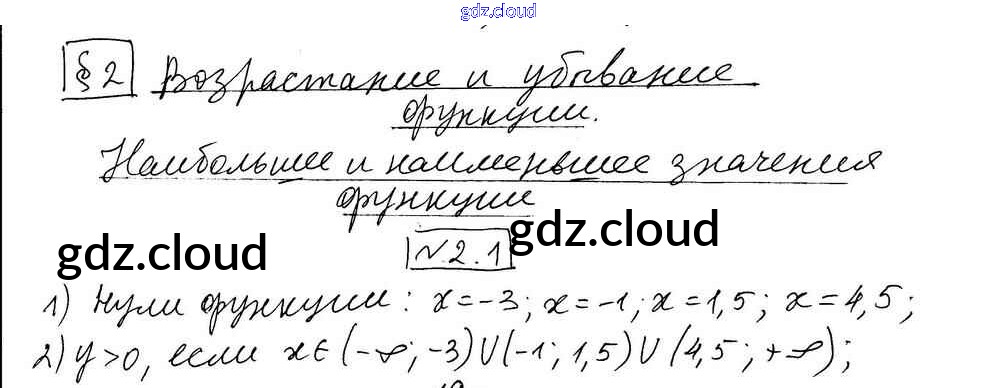 gdz.cloud
§ 2 Возрастание и убывание
функции.
Наибольшее и наименьшее значения
функции
gdz.cloud №2.1 gdz.cloud
1) Нули функции: x=-3; x=-1; x=1,5; x=4,5;
2) y>0, если x∈(-∞;-3)∪(-1; 1,5)∪(4,5;+∞);